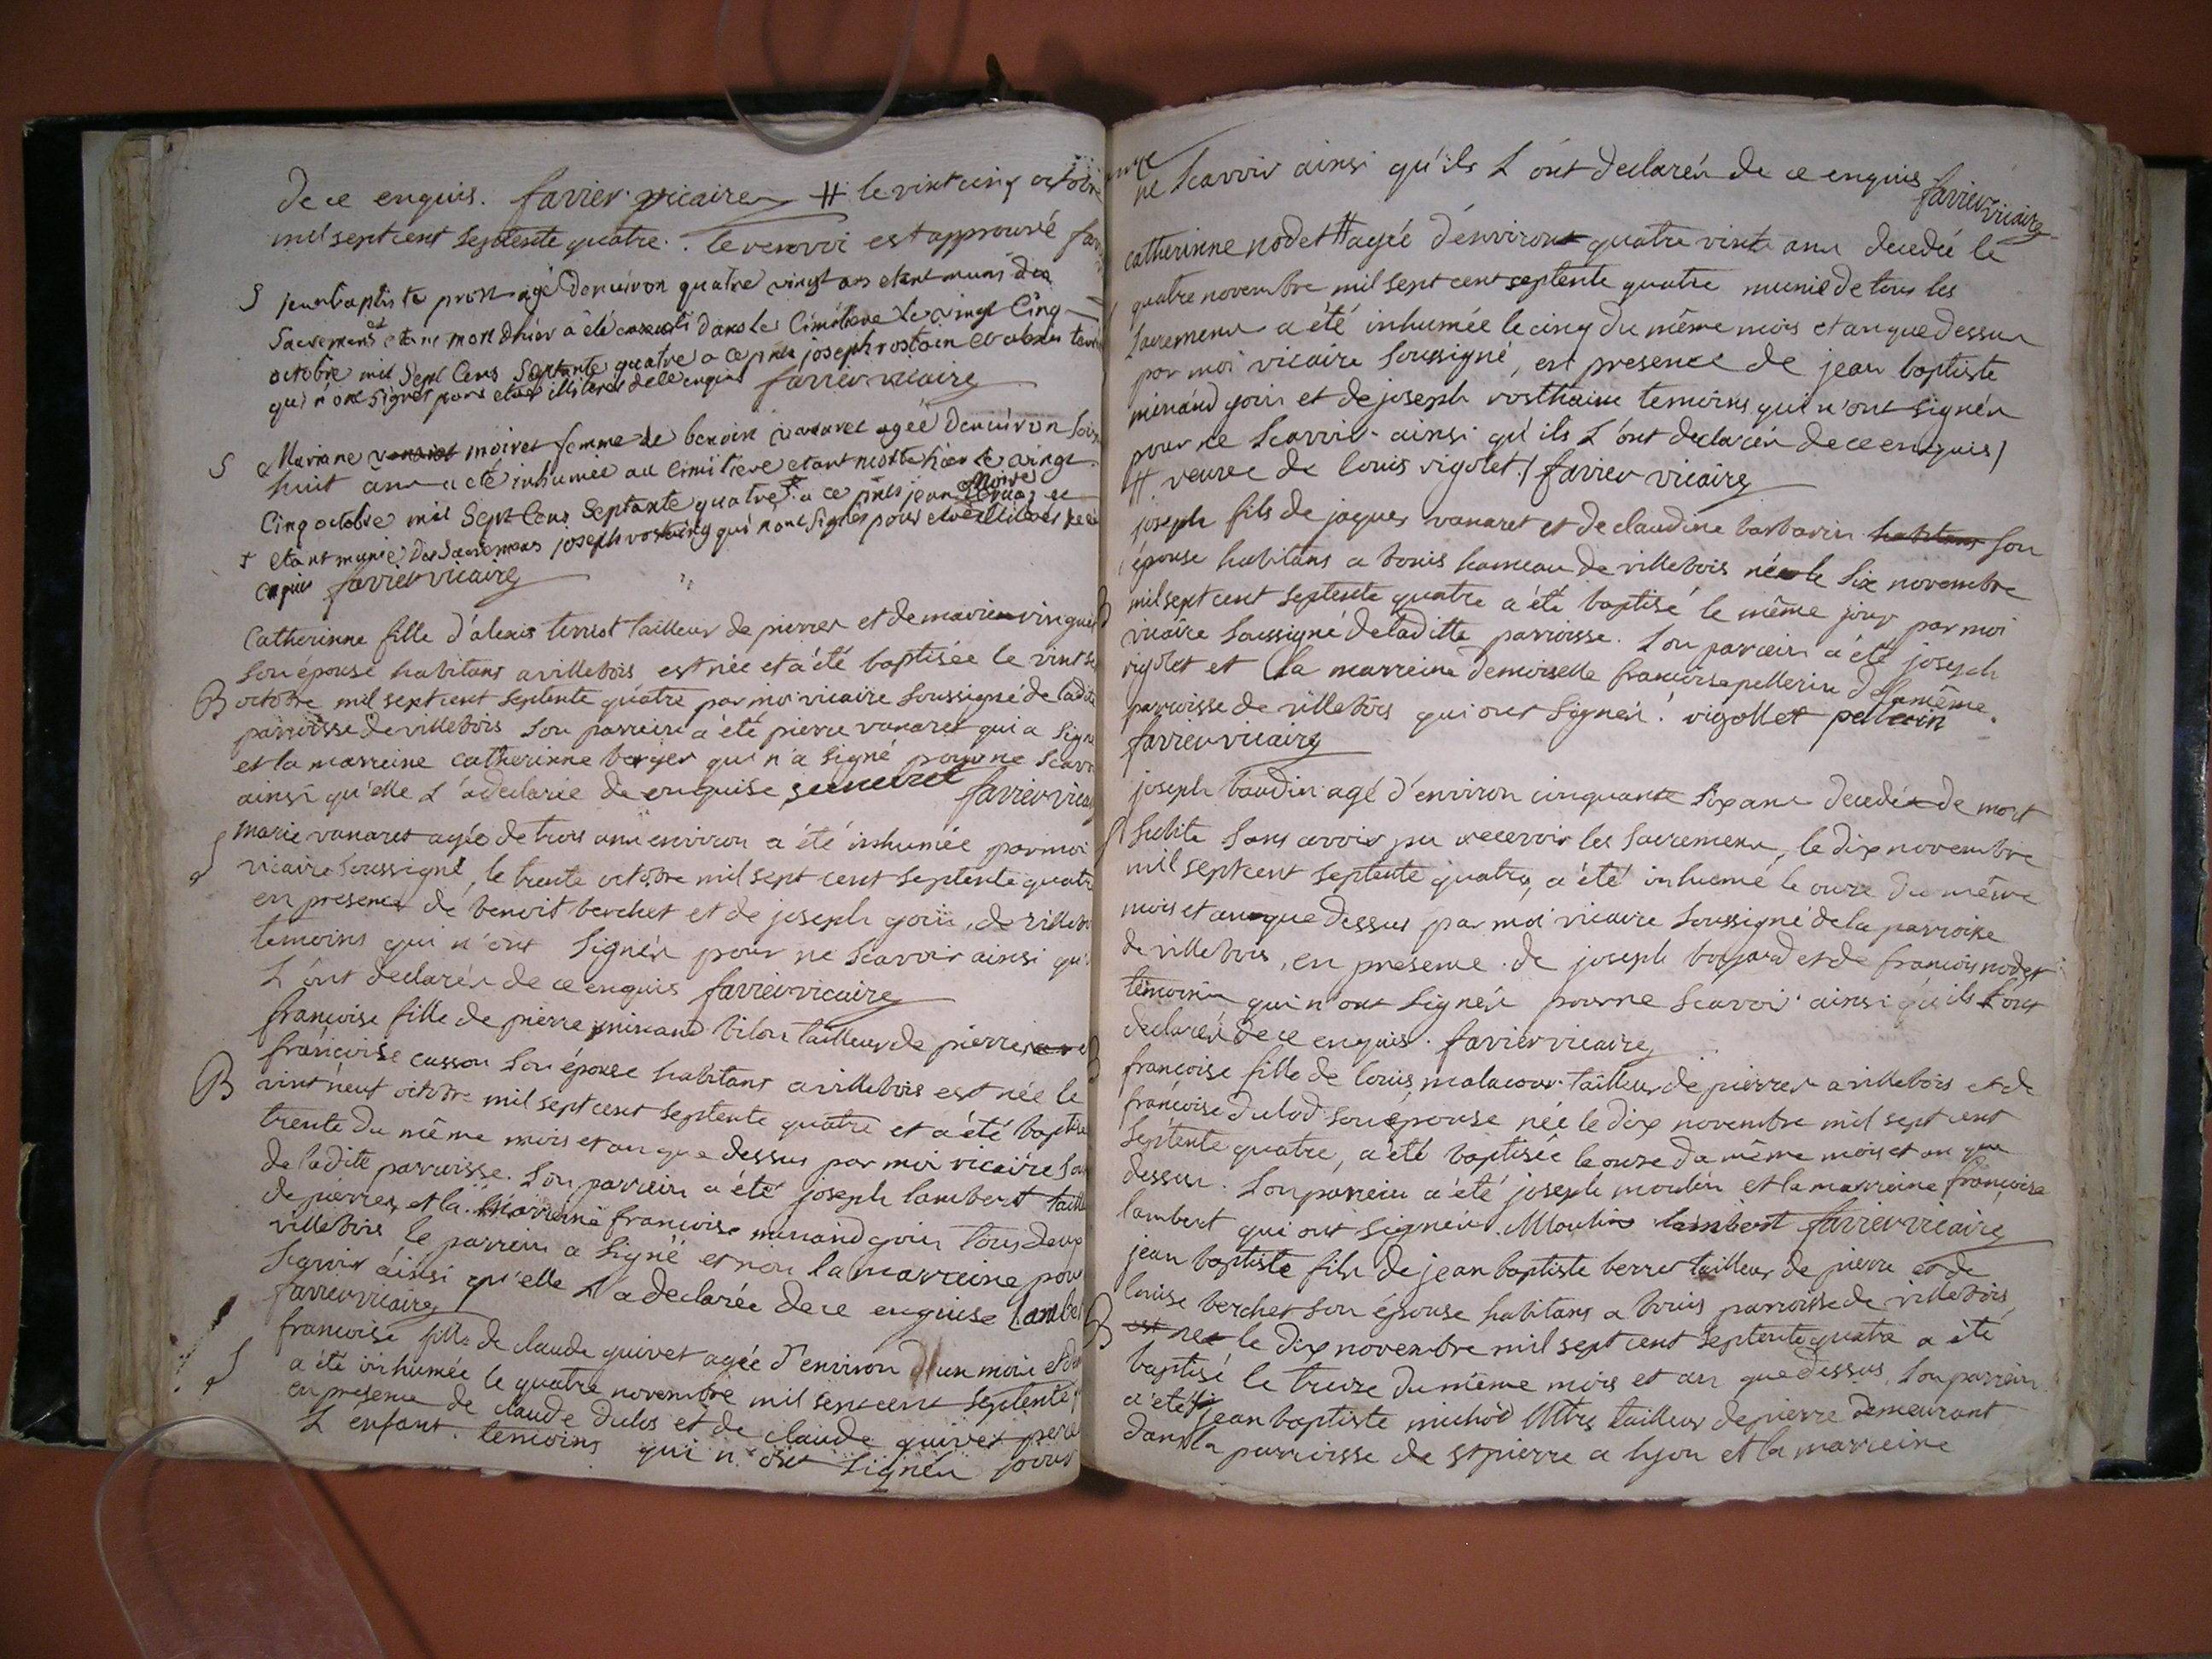 de ce enquis. favier vicaire # le vint cinq octobre
mil sept cent septente quatre. le renvoi est approuvé
S jean baptiste prost agé denviron quatre vingt ans etant muni des
Sacremens et etant mort dhier à été dans le Cimetiere le vingt Cinq
octobre mil Sept Cens Septante quatre a ce pnts joseph rostain et alexis
qui n'ont Signés pour etre illiterés de ce enquis favier vicaire
S Mariane moiret femme de benoit vanaret agée denviron
huit ans a été inhumée au Cimitiere etant morte hier le vingt
Cinq octobre mil Sept Cens Septante quatre + a ce pnts jean et
+ etant munie des Sacremens joseph rostaing qui n'ont Signés pour etre illiterés de ce
enquis favier vicaire
Catherinne fille d'alexis tenset tailleur de pierres et de marie vinguet
son épouse habitans a villebois est née et a été baptisée le vint
B octobre mil sept cent septente quatre par moi vicaire soussigné de ladite
parroisse de villebois son parrein a été pierre vanaret qui a signé
et la marreine catherinne berger qui n'a signé pour ne scavoir
ainsi qu'elle l'a declarée de enquise favier vicaire
marie vanaret agée de trois ans environ a été inhumée par moi
S vicaire soussigné, le trente octobre mil sept cent septente quatre
en presence de benoit berchet et de joseph goiu, de villebois
temoins qui n'ont signés pour ne scavoir ainsi qu'
l'ont declarés de ce enquis favier vicaire
françoise fille de pierre minand bilon tailleur de pierres
françoise cusson son épouse habitans a villebois est née le
B vint neuf octobre mil sept cent septente quatre et a été baptisé
trente du même mois et an que dessus par moi vicaire
de ladite parroisse. son parrein a été joseph lambert
de pierres, et la marreine françoise minand goiu tous deux
villebois le parrein a signé et non la marreine pour
scavoir ainsi qu'elle l'a declarée de ce enquise lambert
favier vicaire
françoise fille de claude quivet agée d'environ d'un mois et
S a été inhumée le quatre novembre mil sept cent septente
en presence de claude dulos et de claude quivet pere
l'enfant. temoins qui n'ont signés pour
ne scavoir ainsi qu'ils l'ont declarés de ce enquis favier vicaire
catherinne nodet # agée d'environ quatre vints ans decedée le
quatre novembre mil sept cent septente quatre munie de tous les
sacremens a été inhumée le cinq du même mois et an que dessus
par moi vicaire soussigné, en presence de jean baptiste
minand goiu et de joseph rosthaine temoins qui n'ont signés
pour ne scavoir ainsi qu'ils l'ont declarés de ce enquis /
# veuve de louis vigolet / favier vicaire
joseph fils de jaques vanaret et de claudine barbarin habitans son
épouse habitans a bouis hameau de villebois né le six novembre
B mil sept cent septente quatre a été baptisé le même jour par moi
vicaire soussigné de ladite parroisse. son parrein a été joseph
vigolet et la marreine demoiselle françoise pellerin de la même
parroisse de villebois qui ont signés. vigollet
favier vicaire
joseph baudin agé d'environ cinquante six ans decedé de mort
S subite sans avoir pu recevoir les sacremens, le dix novembre
mil sept cent septente quatre, a été inhumé le onze du même
mois et an que dessus par moi vicaire soussigné de la parroisse
de villebois, en presence de joseph bojard et de françois nodet
temoins qui n'ont signés pour ne scavoir ainsi qu'ils l'ont
declarés de ce enquis. favier vicaire
B françoise fille de louis malacour tailleur de pierres a villebois et de
françoise dulod son épouse née le dix novembre mil sept cent
septente quatre, a été baptisée le onze du même mois et an que
dessus. son parrein a été joseph moulin et la marreine françoise
lambert qui ont signés. Moulin lambert favier vicaire
jean baptiste fils de jean baptiste berret tailleur de pierre et de
louise berchet son épouse habitans a bouis parroisse de villebois
B est né le dix novembre mil sept cent septente quatre a été
baptisé le treize du même mois et an que dessus, son parrein
a été jean baptiste michod tailleur de pierre demeurant
dans la parroisse de st pierre a lyon et la marreine